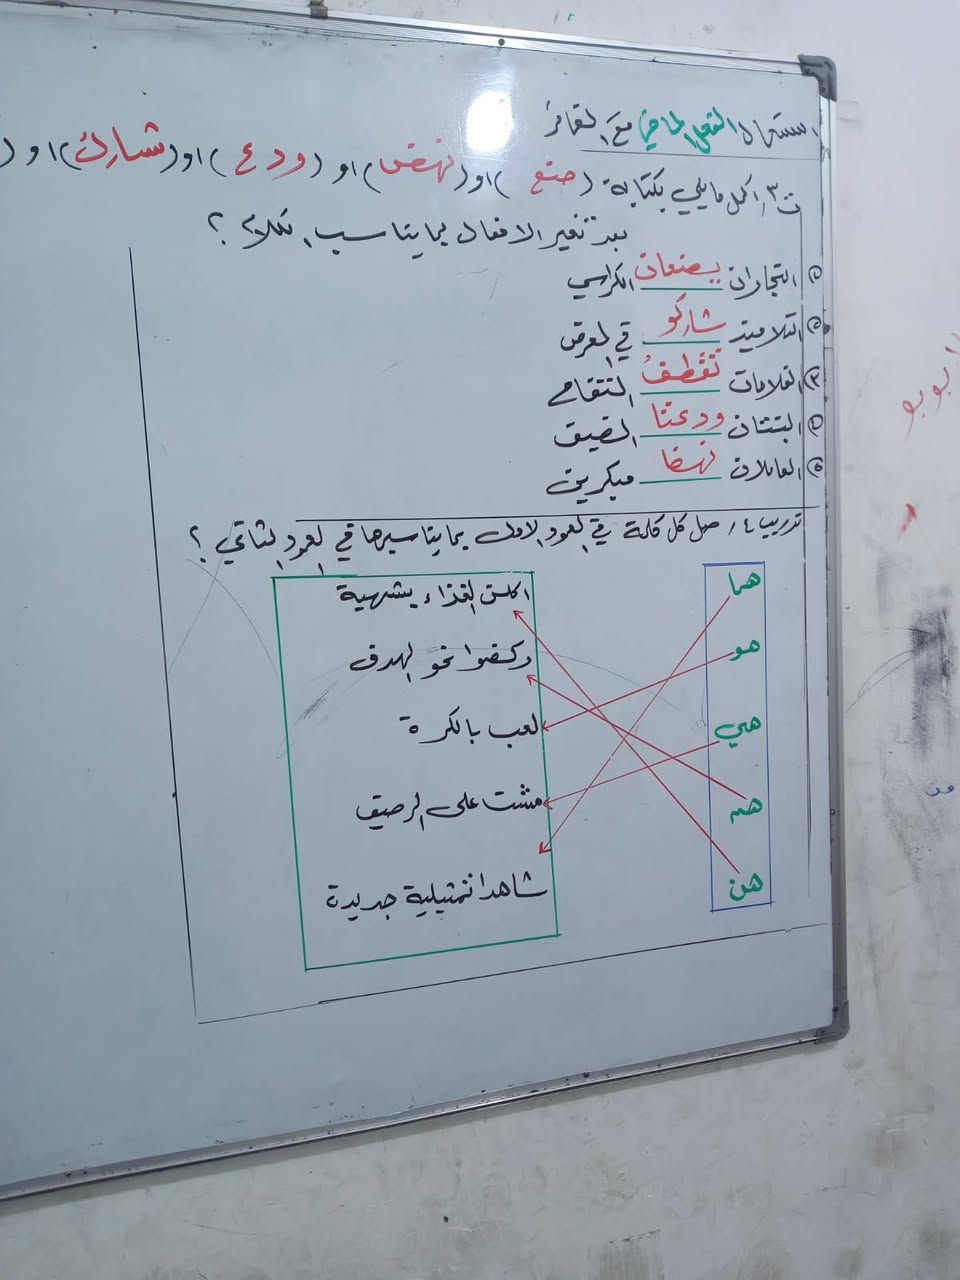 استعمال الفعل الماضي مع الضمائر
ت٣/ اكمل مايلي بكتابة (صنع) او (نهض) او (ودع) او (شارك) او (
بعد تغير الافعال بما يناسب الكلام؟
① النجاران يصنعان الكراسي
② التلاميذ شاركو في المعرض
③ الفلاحات تقطف التفاح
④ البنتان ودعتا الضيف
⑤ العاملات نهضا مبكرين
تدريب ٤/ صل كل كلمة في العمود الاول بما يناسبها في العمود الثاني؟
هما
هو
هي
هم
هن
اكلن الغذاء بشهية
ركضوا نحو الهدف
لعب بالكرة
مشت على الرصيف
شاهدا تمثيلية جديدة